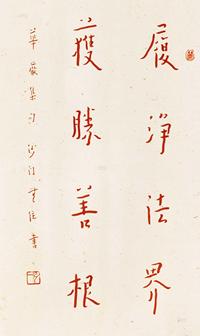 履淨法界
獲勝善根
華嚴集句 沙門曇昉書